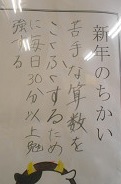 新年のちかい
苦手な算数を
こくふくするため
に毎日30分以上勉
強する